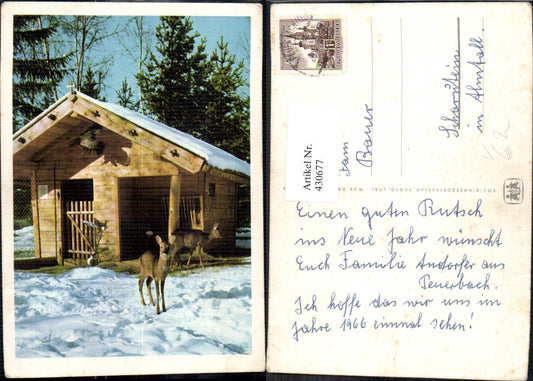 Artikel Nr.
430677
Fam
Bauer
Scharnstein
in Almtall.
62
SOS-KINDERDORFVERLAG
Einen guten Rutsch
ins Neue Jahr wünscht
Euch Familie Andorfer aus
Peuerbach.
Ich hoffe das wir uns im
Jahre 1966 einmal sehen!